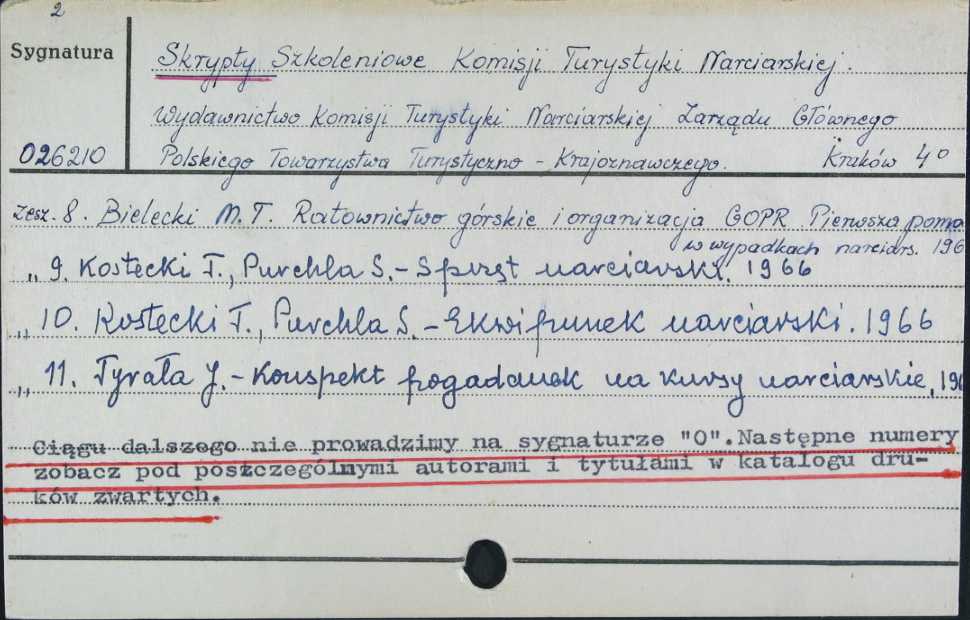 2
Sygnatura
Skrypty Szkoleniowe Komisji Turystyki Narciarskiej.
Wydawnictwo Komisji Turystyki Narciarskiej Zarządu Głównego
026210
Polskiego Towarzystwa Turystyczno - Krajoznawczego. Kraków 4°
zesz. 8. Bielecki M. T. Ratownictwo górskie i organizacja GOPR Pierwsza pomo
w wypadkach narciars. 196
„ 9. Kostecki T., Purchla S. - Sprzęt narciarski. 1966
„ 10. Kostecki T., Purchla S. - Ekwipunek narciarski. 1966
„ 11. Tyrała J. - Konspekt pogadanek na kursy narciarskie, 196
Ciągu dalszego nie prowadzimy na sygnaturze "O". Następne numery
zobacz pod poszczególnymi autorami i tytułami w katalogu dru-
ków zwartych.